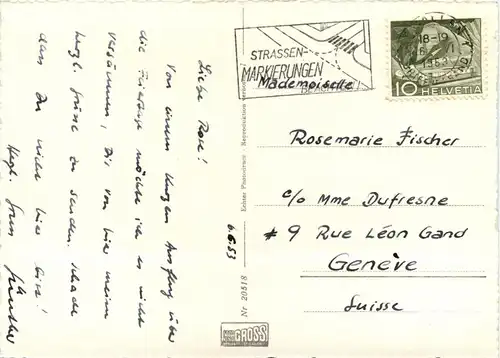 Liebe Rose!
Von einem kurzen Ausflug über
die Feiertage möchte ich es nicht
versäumen, Dir von hier meine
herzl. Grüße zu senden. Schade
dass Du nicht hier bist!
Herzl. Gruss Günther
6.6.53
Echter Photodruck Reproduktion
Nr 20518
GROSS
STRASSEN-
MARKIERUNGEN
BEACHTEN
18-19
1953
10 HELVETIA
Mademoiselle
Rosemarie Fischer
c/o Mme Dufresne
9 Rue Léon Gand
Genève
Suisse